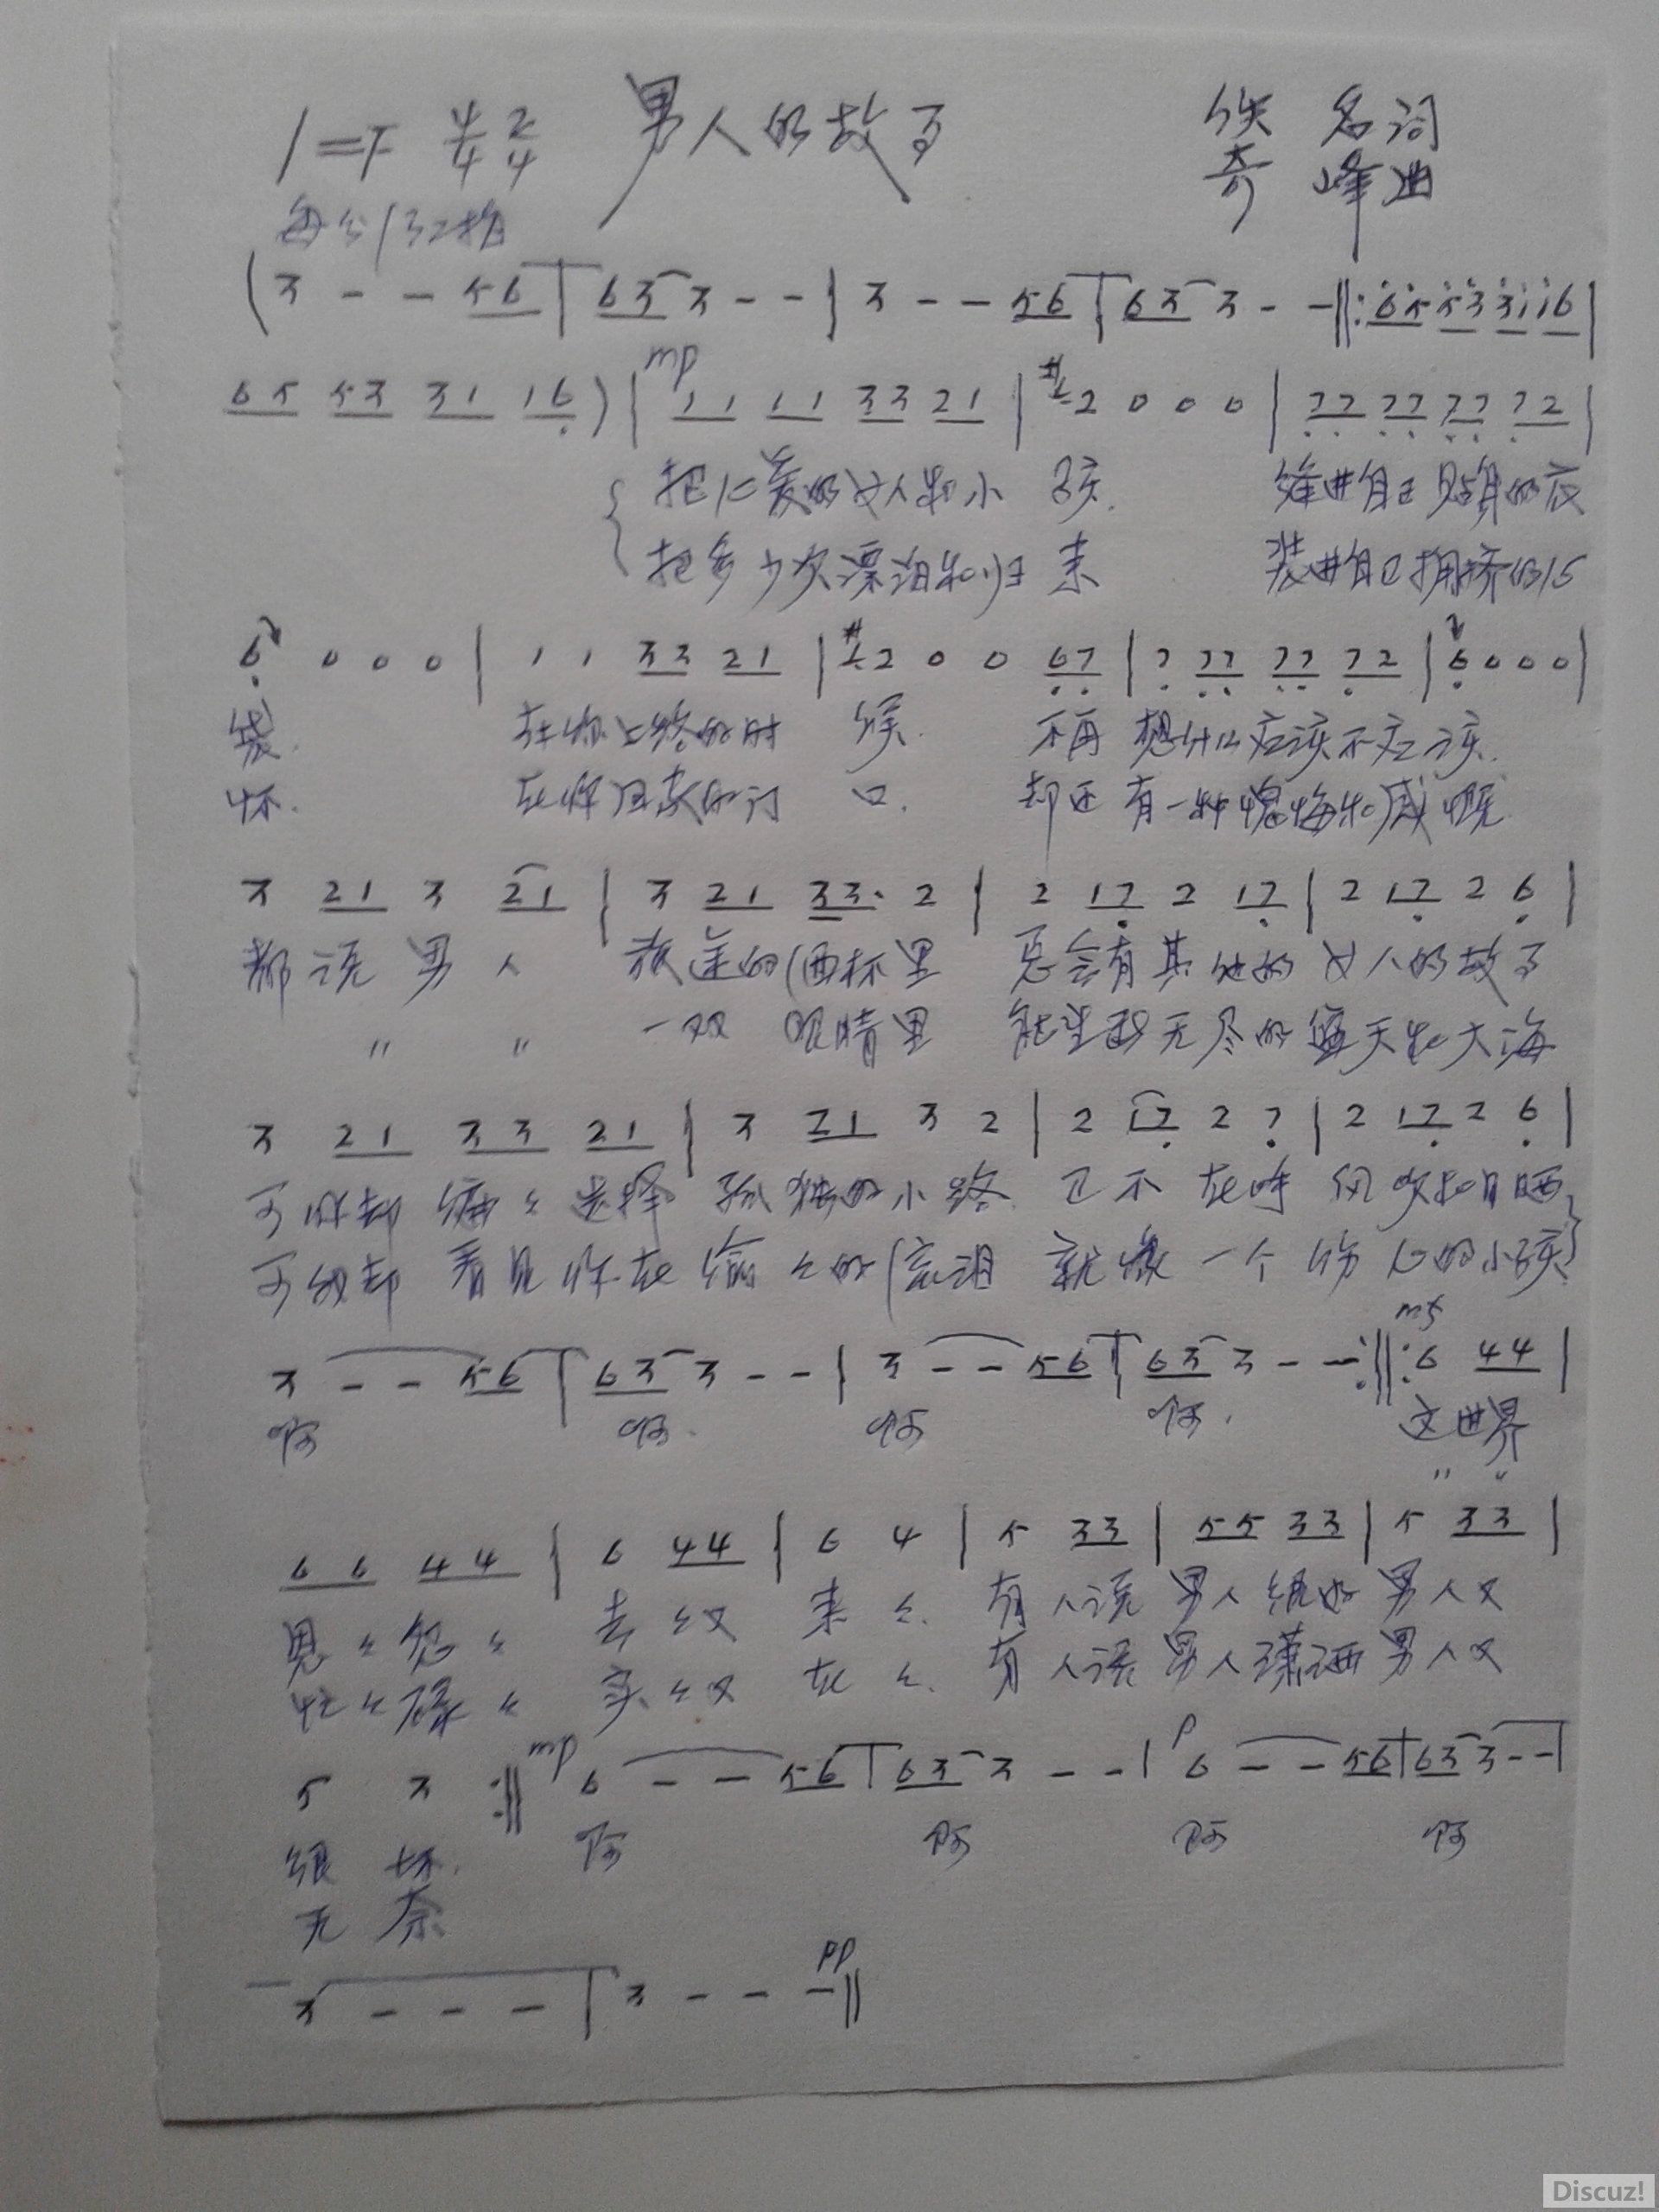 1=F 4/4 2/4 男人的故事 佚 名词
奇 峰曲
每分132拍
(3 - - 56 | 63 3 - - | 3 - - 56 | 63 3 - - ‖: 65 53 31 16 |
65 53 31 16) | mp 11 11 33 21 | #1 2 0 0 0 | 77 77 77 72 |
把仁美的女人和小 孩. 缝进自己贴身的衣
把多少次漂泊和归 来 装进自己拥挤的
6 0 0 0 | 1 1 33 21 | #1 2 0 0 67 | 7 77 77 72 | 6 0 0 0 |
袋. 在你上路的时 候. 不再 想什么应该不应该.
怀. 在你回来的门 口. 却还 有一种愧悔和感 慨
3 21 3 21 | 3 21 33· 2 | 2 17 2 17 | 2 17 2 6 |
都 说 男 人 旅途的酒杯里 总会有其他的 女人的故事
" " 一双 眼睛里 能望到无尽的蓝天和大海
3 21 33 21 | 3 21 3 2 | 2 17 2 7 | 2 17 2 6 |
可你却 偏々选择 孤独的小路 也不 在乎 风吹和日晒
可我却 看见你在 偷々的流泪 就像 一个 伤心的小孩
3 - - 56 | 63 3 - - | 3 - - 56 | 63 3 - - :‖: mf 6 44 |
啊 啊. 啊 啊. 这世界
" "
66 44 | 6 44 | 6 4 | 5 33 | 55 33 | 5 33 |
匆々忽々 去々又 来々. 有 人说 男人很好 男人又
忙々碌々 实々又 在々. 有 人说 男人潇洒 男人又
5 3 :‖ mp 6 - - 56 | 63 3 - - | p 6 - - 56 | 63 3 - - |
很 坏. 啊 啊 啊 啊
无 奈
3 - - - | 3 - - - pp ‖
Discuz!